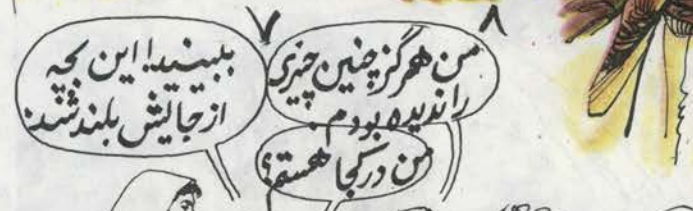 ۷
۸
ببینید! این بچه
از جالیش بلند شد.
من هرگز چنین چیزی
را ندیده بودم.
من در کجا هستم؟